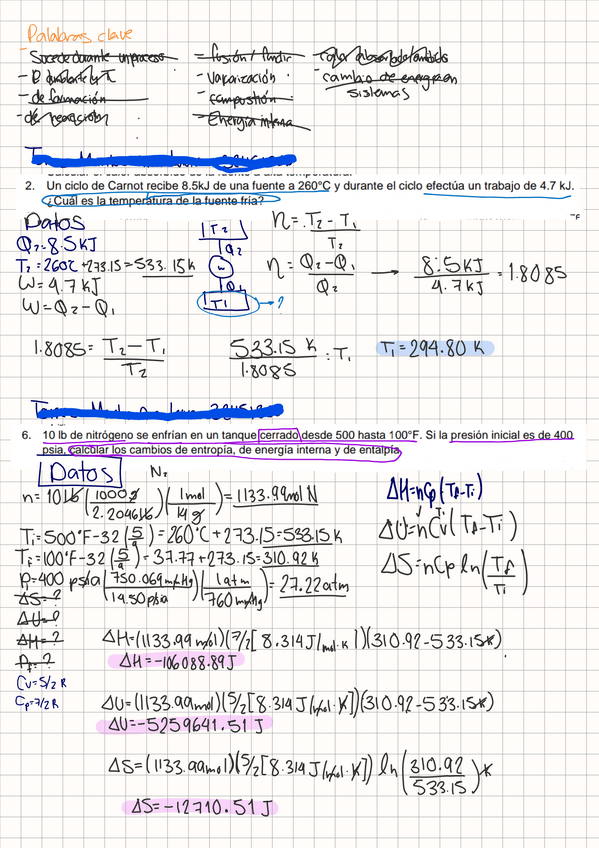 Palabras clave
- Sucede durante un proceso
- de formación
- fusión / fundir
- Vaporización
- combustión
- Energía interna
- cambio de energía en
sistemas
2. Un ciclo de Carnot recibe 8.5kJ de una fuente a 260°C y durante el ciclo efectúa un trabajo de 4.7 kJ.
¿Cuál es la temperatura de la fuente fría?
Datos
Q₂=8.5KJ
T₂=260C+273.15=533.15K
W=4.7KJ
W=Q₂-Q₁
T2
Q2
W
Q1
T1 → ?
η=T₂-T₁/T₂
η=Q₂-Q₁/Q₂ → 8.5KJ/4.7KJ=1.8085
1.8085=T₂-T₁/T₂
533.15 K/1.8085=T₁
T₁=294.80 K
6. 10 lb de nitrógeno se enfrían en un tanque cerrado desde 500 hasta 100°F. Si la presión inicial es de 400
psia, calcular los cambios de entropía, de energía interna y de entalpía
Datos N₂
n=10lb(1000g/2.2046lb)(1mol/14g)=1133.99mol N
Ti=500°F-32(5/9)=260°C+273.15=533.15K
Tf=100°F-32(5/9)=37.77+273.15=310.92K
P=400 psia(750.069mmHg/14.50psia)(1atm/760mmHg)=27.22atm
ΔS=?
ΔU=?
ΔH=?
Pf=?
Cv=5/2 R
Cp=7/2R
ΔH=nCp(Tf-Ti)
ΔU=nCv(Tf-Ti)
ΔS=nCp ln(Tf/Ti)
ΔH=(1133.99mol)(7/2[8.314J/mol·K])(310.92-533.15K)
ΔH=-106088.89J
ΔU=(1133.99mol)(5/2[8.314J/mol·K])(310.92-533.15K)
ΔU=-5259641.51 J
ΔS=(1133.99mol)(5/2[8.314J/mol·K]) ln(310.92/533.15)K
ΔS=-12710.51 J